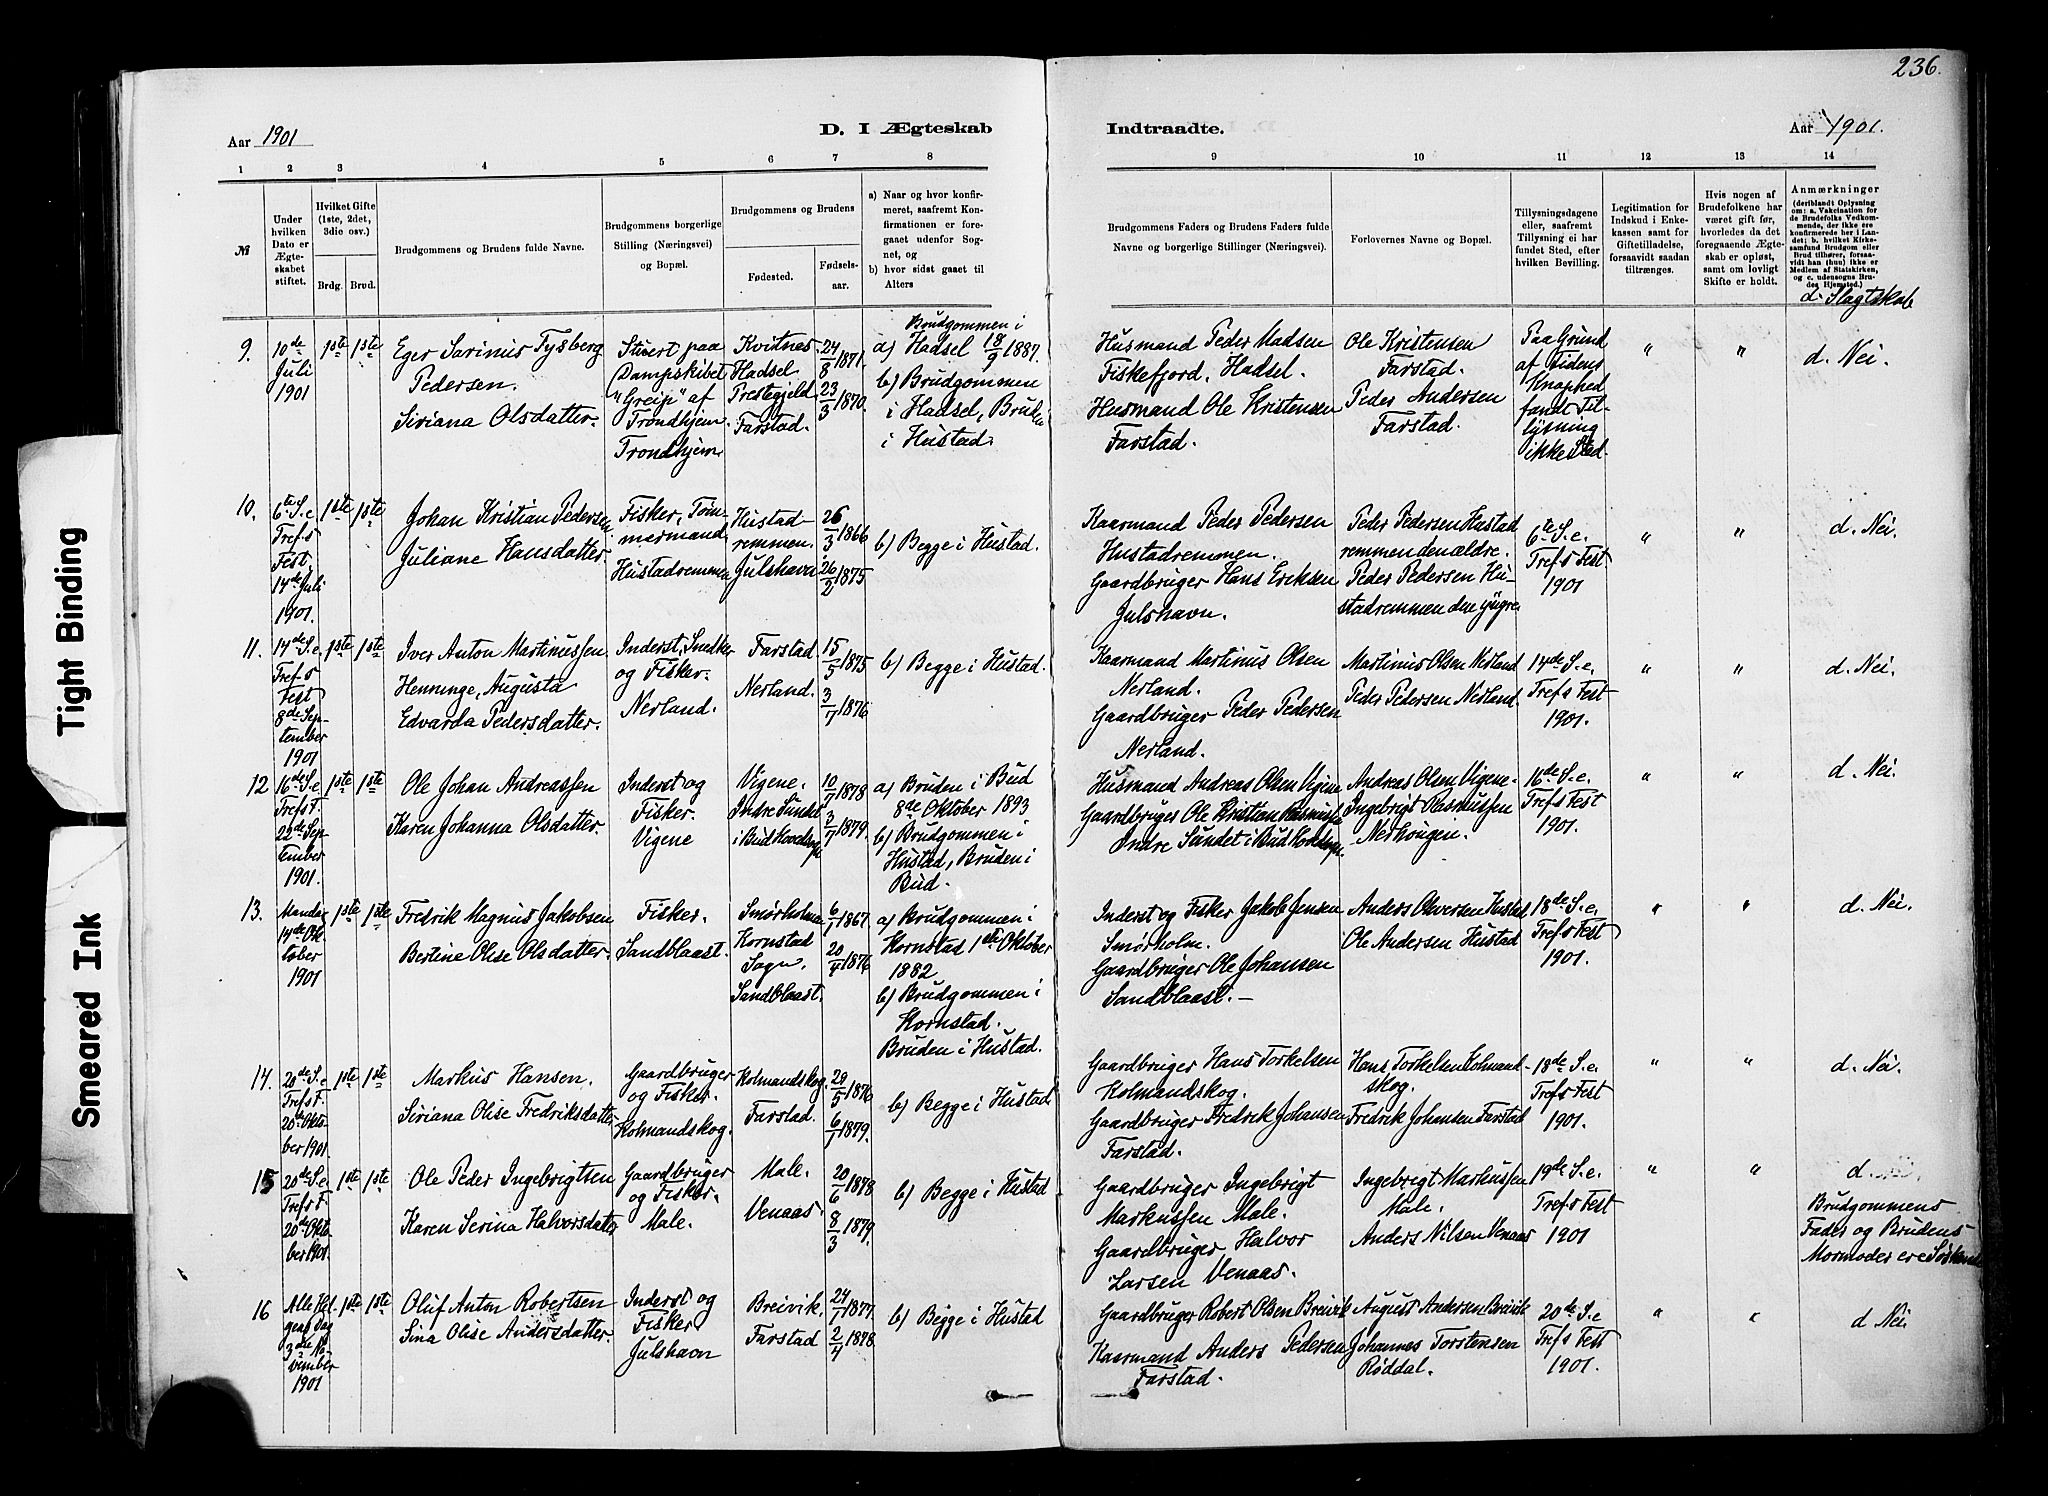 236.
Aar 1901
D. I Ægteskab
Indtraadte.
Aar 1901.
1 2 3 4 5 6 7 8
9 10 11 12 13 14
№
Under
hvilken
Dato er
Ægte-
skabet
stiftet.
Hvilket Gifte
(1ste, 2det,
3die osv.)
Brdg. Brud.
Brudgommens og Brudens fulde Navne.
Brudgommens borgerlige
Stilling (Næringsvei)
og Bopæl.
Brudgommens og Brudens
Fødested.
Fødsels-
aar.
a) Naar og hvor konfir-
meret, saafremt Kon-
firmationen er fore-
gaaet udenfor Sog-
net, og
b) hvor sidst gaaet til
Alters
Brudgommens Faders og Brudens Faders fulde
Navne og borgerlige Stillinger (Næringsvei).
Forlovernes Navne og Bopæl.
Tillysningsdagene
eller, saafremt
Tillysning ei har
fundet Sted, efter
hvilken Bevilling.
Legitimation for
Indskud i Enke-
kassen samt for
Giftetilladelse,
forsaavidt saadan
tiltrænges.
Hvis nogen af
Brudefolkene har
været gift før,
hvorledes da det
foregaaende Ægte-
skab er opløst,
samt om lovligt
Skifte er holdt.
Anmærkninger
(deriblandt Oplysning
om: a. Vakcination for
de Brudefolks Vedkom-
mende, der ikke ere
konfirmerede her i Lan-
det; b. hvilket Kirke-
samfund Brudgom eller
Brud tilhører, forsaa-
vidt han (hun) ikke er
Medlem af Statskirken,
og c. udensogns Bru-
des Hjemsted.)
d. Slagtskab
9.
10de
Juli
1901
1ste 1ste
Eger Sarinus Tysberg
Pedersen.
Siriana Olsdatter.
Stuert paa
Dampskibet
"Greip" af
Trondhjem.
Trondhjem
Kvitnes
Hadsel
Prestegjeld
Farstad.
24/8 1871.
23/3 1870.
Brudgommen i
a) Hadsel 18/9 1887.
b) Brudgommen
i Hadsel, Bruden
i Hustad.
Husmand Peder Madsen
Fiskefjord, Hadsel.
Husmand Ole Kristensen
Farstad.
Ole Kristensen
Farstad.
Peder Andersen
Farstad.
Paa Grund
af Tidens
Knaphed
fandt Til-
lysning
ikke Sted.
" "
d. Nei.
10.
6te S. e.
Tref.s
Fest,
14de Juli
1901.
1ste 1ste
Johan Kristian Pedersen
Juliane Hansdatter.
Fisker, Tøm-
mermand
Hustadremmen
Hustad-
remmen.
Julshavn
26/3 1866
26/2 1875
b) Begge i Hustad.
Kaarmand Peder Pedersen
Hustadremmen.
Gaardbruger Hans Eriksen
Julshavn.
Peder Pedersen Hustad
remmen den ældre.
Peder Pedersen Hu-
stadremmen den yngre
6te S. e.
Tref.s Fest
1901
" "
d. Nei.
11.
14de S. e.
Tref.s
Fest
8de Sep-
tember
1901
1ste 1ste
Iver Anton Martinussen
Henninge, Augusta
Edvarda Pedersdatter.
Inderst, Snedker
og Fisker.
Nerland.
Farstad.
Nerland.
15/5 1875
3/7 1876
b) Begge i Hustad.
Kaarmand Martinus Olsen
Nerland.
Gaardbruger Peder Pedersen
Nerland.
Martinus Olsen Nerland
Peder Pedersen Nerland.
14de S. e.
Tref.s Fest
1901.
" "
d. Nei.
12
16de S. e
Tref.s F.
22de Sep-
tember
1901.
1ste 1ste
Ole Johan Andreassen
Karen Johanna Olsdatter.
Inderst og
Fisker.
Vigene
Vigene.
Indre Sundet
i Bud Hovedsogn
10/7 1878
3/7 1879.
a) Bruden i Bud
8de Oktober 1893
b) Brudgommen i
Hustad, Bruden i
Bud.
Husmand Andreas Olsen Vigene
Gaardbruger Ole Kristian Rasmussen
Indre Sundet i Bud Hovedsogn.
Andreas Olsen Vigene-
Ingebrigt Rasmussen
Nerhougen.
16de S. e.
Tref.s Fest
1901.
" "
d. Nei.
13.
Mandag
14de Ok-
tober
1901
1ste 1ste
Fredrik Magnus Jakobsen
Bertine Olise Olsdatter.
Fisker.
Sandblaast.
Smørholmen
Kornstad
Sogn.
Sandblaast.
6/1 1867.
20/4 1876
a) Brudgommen i
Kornstad 1ste Oktober
1882
b) Brudgommen i
Kornstad.
Bruden i Hustad.
Inderst og Fisker Jakob Jensen
Smørholm.
Gaardbruger Ole Johansen
Sandblaast. -
Anders Olversen Hustad
Ole Andersen Hustad
18de S. e.
Tref.s Fest
1901.
" "
d. Nei.
14.
20de S. e
Tref.s F.
20de Okto-
ber 1901.
1ste 1ste
Markus Hansen.
Siriana Olise Fredriksdatter
Gaardbruger
og Fisker.
Kolmandskog.
Kolmandskog.
Farstad.
29/5 1876
6/1 1879.
b) Begge i Hustad
Gaardbruger Hans Torkelsen
Kolmandskog.
Gaardbruger Fredrik Johansen
Farstad.
Hans Torkelsen Kolmand-
skog.
Fredrik Johansen Farstad
18de S. e.
Tref.s Fest
1901.
" "
d. Nei.
15
20de S. e
Tref.s F.
20de Okto-
ber 1901.
1ste 1ste
Ole Peder Ingebrigtsen
Karen Serina Halvorsdatter
Gaardbruger
og Fisker.
Male.
Male.
Venaas.
20/6 1878
8/3 1879.
b) Begge i Hustad
Gaardbruger Ingebrigt
Markussen Male.
Gaardbruger Halvor
Larsen Venaas.
Ingebrigt Markussen
Male.
Anders Nilsen Venaas
19de S. e.
Tref.s Fest
1901
" "
d.
Brudgommens
Fader og Brudens
Mormoder ere Søskende
16
Alle Hel-
gens Dag
3die No-
vember
1901
1ste 1ste
Oluf Anton Robertsen
Sina Olise Andersdatter.
Inderst og
Fisker
Julshavn
Breivik.
Farstad
24/7 1877.
2/4 1878
b) Begge i Hustad
Gaardbruger Robert Olsen Breivik
Kaarmand Anders Pedersen
Farstad.
August Andersen Breivik
Johannes Torstensen
Røddal.
20de S. e
Tref.s Fest
1901.
" "
d Nei
Tight Binding
Smeared Ink